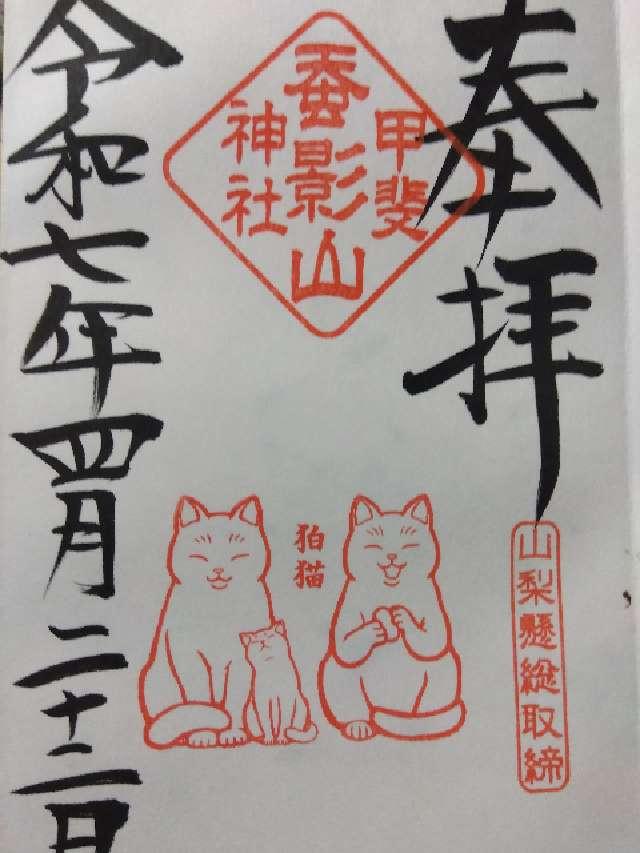 奉拝
甲斐
蚕影山
神社
山梨懸総取締
狛猫
令和七年四月二十二日